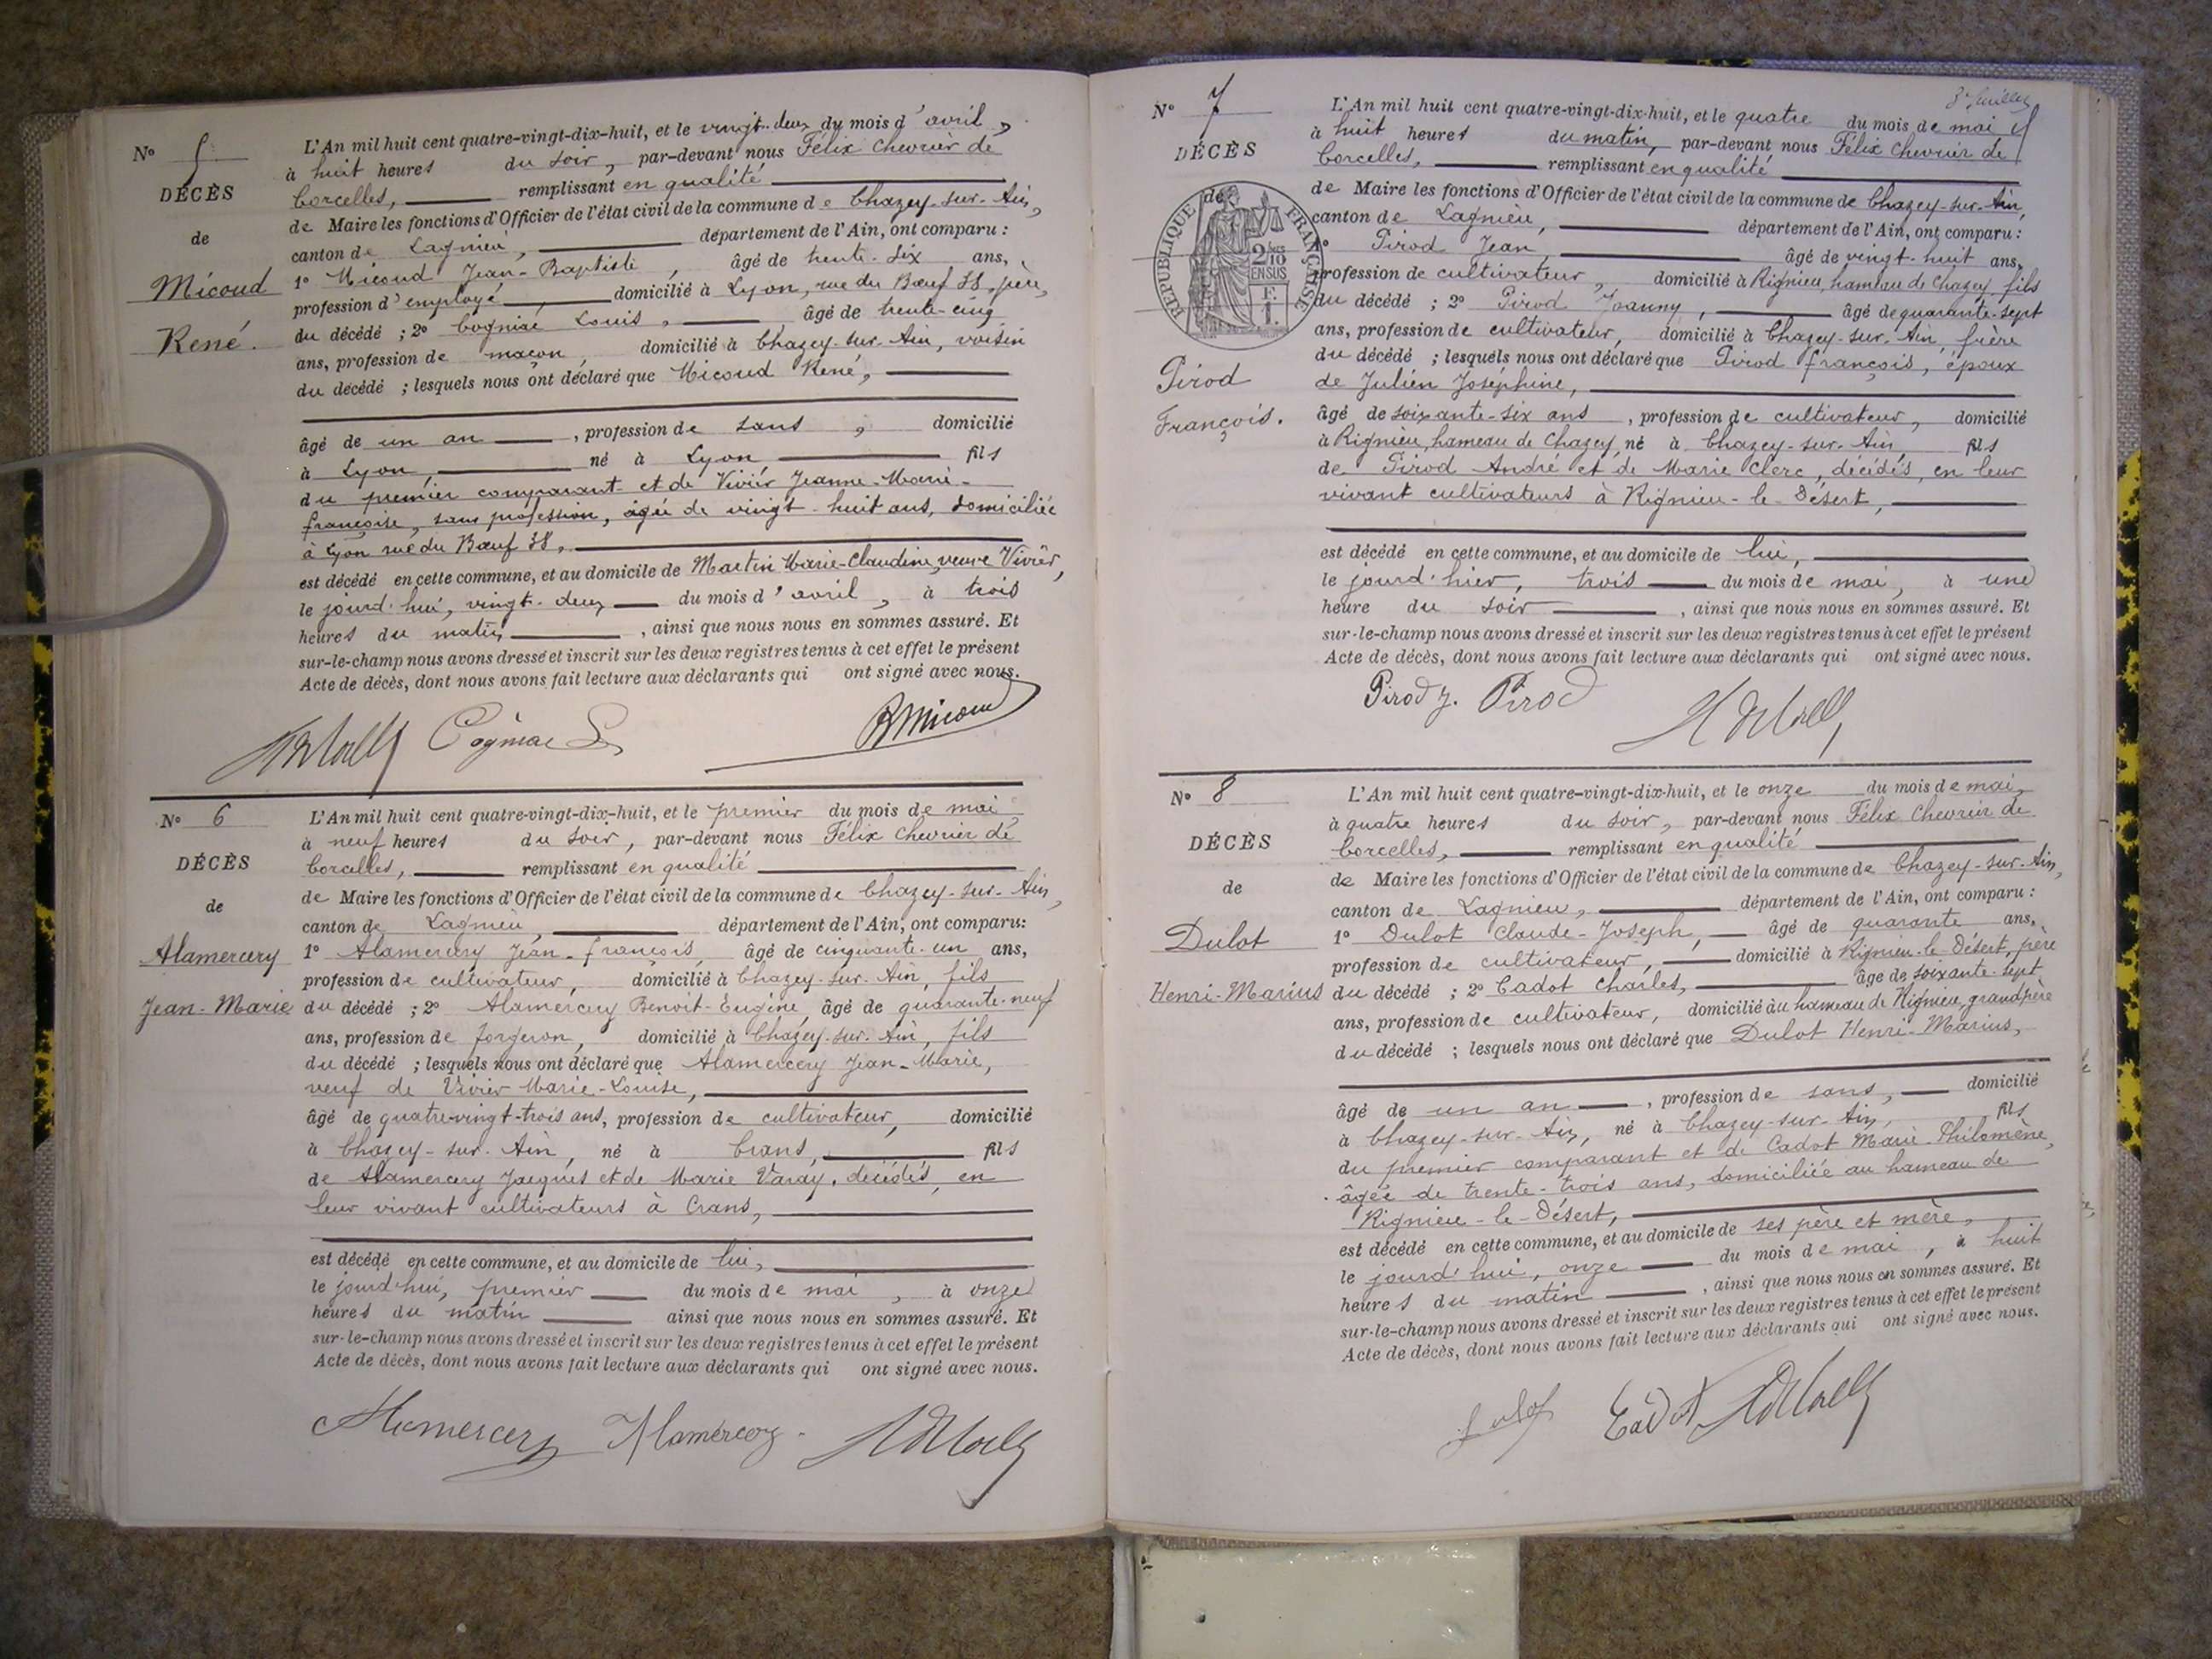 N° 5
DÉCÈS
de
Micoud
René.
L'An mil huit cent quatre-vingt-dix-huit, et le vingt-deux du mois d'avril,
à huit heures du soir, par-devant nous Félix Chevrier de
Corcelles, remplissant en qualité
de Maire les fonctions d'Officier de l'état civil de la commune de Chazey-sur-Ain,
canton de Lagnieu, département de l'Ain, ont comparu :
1° Micoud Jean-Baptiste, âgé de trente-six ans,
profession d'employé, domicilié à Lyon, rue du Bœuf 38, père,
du décédé ; 2° Cogniac Louis, âgé de trente-cinq
ans, profession de maçon, domicilié à Chazey-sur-Ain, voisin
du décédé ; lesquels nous ont déclaré que Micoud René,
âgé de un an, profession de sans, domicilié
à Lyon, né à Lyon fils
du premier comparant et de Vivier Jeanne-Marie-
françoise, sans profession, âgée de vingt-huit ans, domiciliée
à Lyon rue du Bœuf 38,
est décédé en cette commune, et au domicile de Martin Marie-Claudine, veuve Vivier,
le jourd'hui, vingt-deux du mois d'avril, à trois
heures du matin, ainsi que nous nous en sommes assuré. Et
sur-le-champ nous avons dressé et inscrit sur les deux registres tenus à cet effet le présent
Acte de décès, dont nous avons fait lecture aux déclarants qui ont signé avec nous.
Cogniac L. Micoud
N° 6
DÉCÈS
de
Alamercery
Jean-Marie
L'An mil huit cent quatre-vingt-dix-huit, et le premier du mois de mai,
à neuf heures du soir, par-devant nous Félix Chevrier de
Corcelles, remplissant en qualité
de Maire les fonctions d'Officier de l'état civil de la commune de Chazey-sur-Ain,
canton de Lagnieu, département de l'Ain, ont comparu:
1° Alamercery Jean-françois, âgé de cinquante-un ans,
profession de cultivateur, domicilié à Chazey-sur-Ain, fils
du décédé ; 2° Alamercery Benoit-Eugène, âgé de quarante-neuf
ans, profession de forgeron, domicilié à Chazey-sur-Ain, fils
du décédé ; lesquels nous ont déclaré que Alamercery Jean-Marie,
veuf de Vivier Marie-Louise,
âgé de quatre-vingt-trois ans, profession de cultivateur, domicilié
à Chazey-sur-Ain, né à Crans, fils
de Alamercery Jacques et de Marie Varay, décédés, en
leur vivant cultivateurs à Crans,
est décédé en cette commune, et au domicile de lui,
le jourd'hui, premier du mois de mai, à onze
heures du matin ainsi que nous nous en sommes assuré. Et
sur-le-champ nous avons dressé et inscrit sur les deux registres tenus à cet effet le présent
Acte de décès, dont nous avons fait lecture aux déclarants qui ont signé avec nous.
Alamercery Alamercery
3e feuillet
N° 7
DÉCÈS
de
RÉPUBLIQUE FRANÇAISE
2/10 EN SUS
Pirod
François.
L'An mil huit cent quatre-vingt-dix-huit, et le quatre du mois de mai
à huit heures du matin, par-devant nous Félix Chevrier de
Corcelles, remplissant en qualité
de Maire les fonctions d'Officier de l'état civil de la commune de Chazey-sur-Ain,
canton de Lagnieu, département de l'Ain, ont comparu :
1° Pirod Jean, âgé de vingt-huit ans,
profession de cultivateur, domicilié à Rignieu, hameau de Chazey, fils
du décédé ; 2° Pirod Joanny, âgé de quarante-sept
ans, profession de cultivateur, domicilié à Chazey-sur-Ain, frère
du décédé ; lesquels nous ont déclaré que Pirod françois, époux
de Julien Joséphine,
âgé de soixante-six ans, profession de cultivateur, domicilié
à Rignieu, hameau de Chazey, né à Chazey-sur-Ain, fils
de Pirod André et de Marie Clerc, décédés, en leur
vivant cultivateurs à Rignieu-le-Désert,
est décédé en cette commune, et au domicile de lui,
le jourd'hier, trois du mois de mai, à une
heure du soir, ainsi que nous nous en sommes assuré. Et
sur-le-champ nous avons dressé et inscrit sur les deux registres tenus à cet effet le présent
Acte de décès, dont nous avons fait lecture aux déclarants qui ont signé avec nous.
Pirod J. Pirod
N° 8
DÉCÈS
de
Dulot
Henri-Marius
L'An mil huit cent quatre-vingt-dix-huit, et le onze du mois de mai,
à quatre heures du soir, par-devant nous Félix Chevrier de
Corcelles, remplissant en qualité
de Maire les fonctions d'Officier de l'état civil de la commune de Chazey-sur-Ain,
canton de Lagnieu, département de l'Ain, ont comparu :
1° Dulot Claude-Joseph, âgé de quarante ans,
profession de cultivateur, domicilié à Rignieu-le-Désert, père
du décédé ; 2° Cadot Charles, âgé de soixante-sept
ans, profession de cultivateur, domicilié au hameau de Rignieu, grandpère
du décédé ; lesquels nous ont déclaré que Dulot Henri-Marius,
âgé de un an, profession de sans, domicilié
à Chazey-sur-Ain, né à Chazey-sur-Ain, fils
du premier comparant et de Cadot Marie-Philomène,
âgée de trente-trois ans, domiciliée au hameau de
Rignieu-le-Désert,
est décédé en cette commune, et au domicile de ses père et mère,
le jourd'hui, onze du mois de mai, à huit
heures du matin, ainsi que nous nous en sommes assuré. Et
sur-le-champ nous avons dressé et inscrit sur les deux registres tenus à cet effet le présent
Acte de décès, dont nous avons fait lecture aux déclarants qui ont signé avec nous.
Dulot Cadot